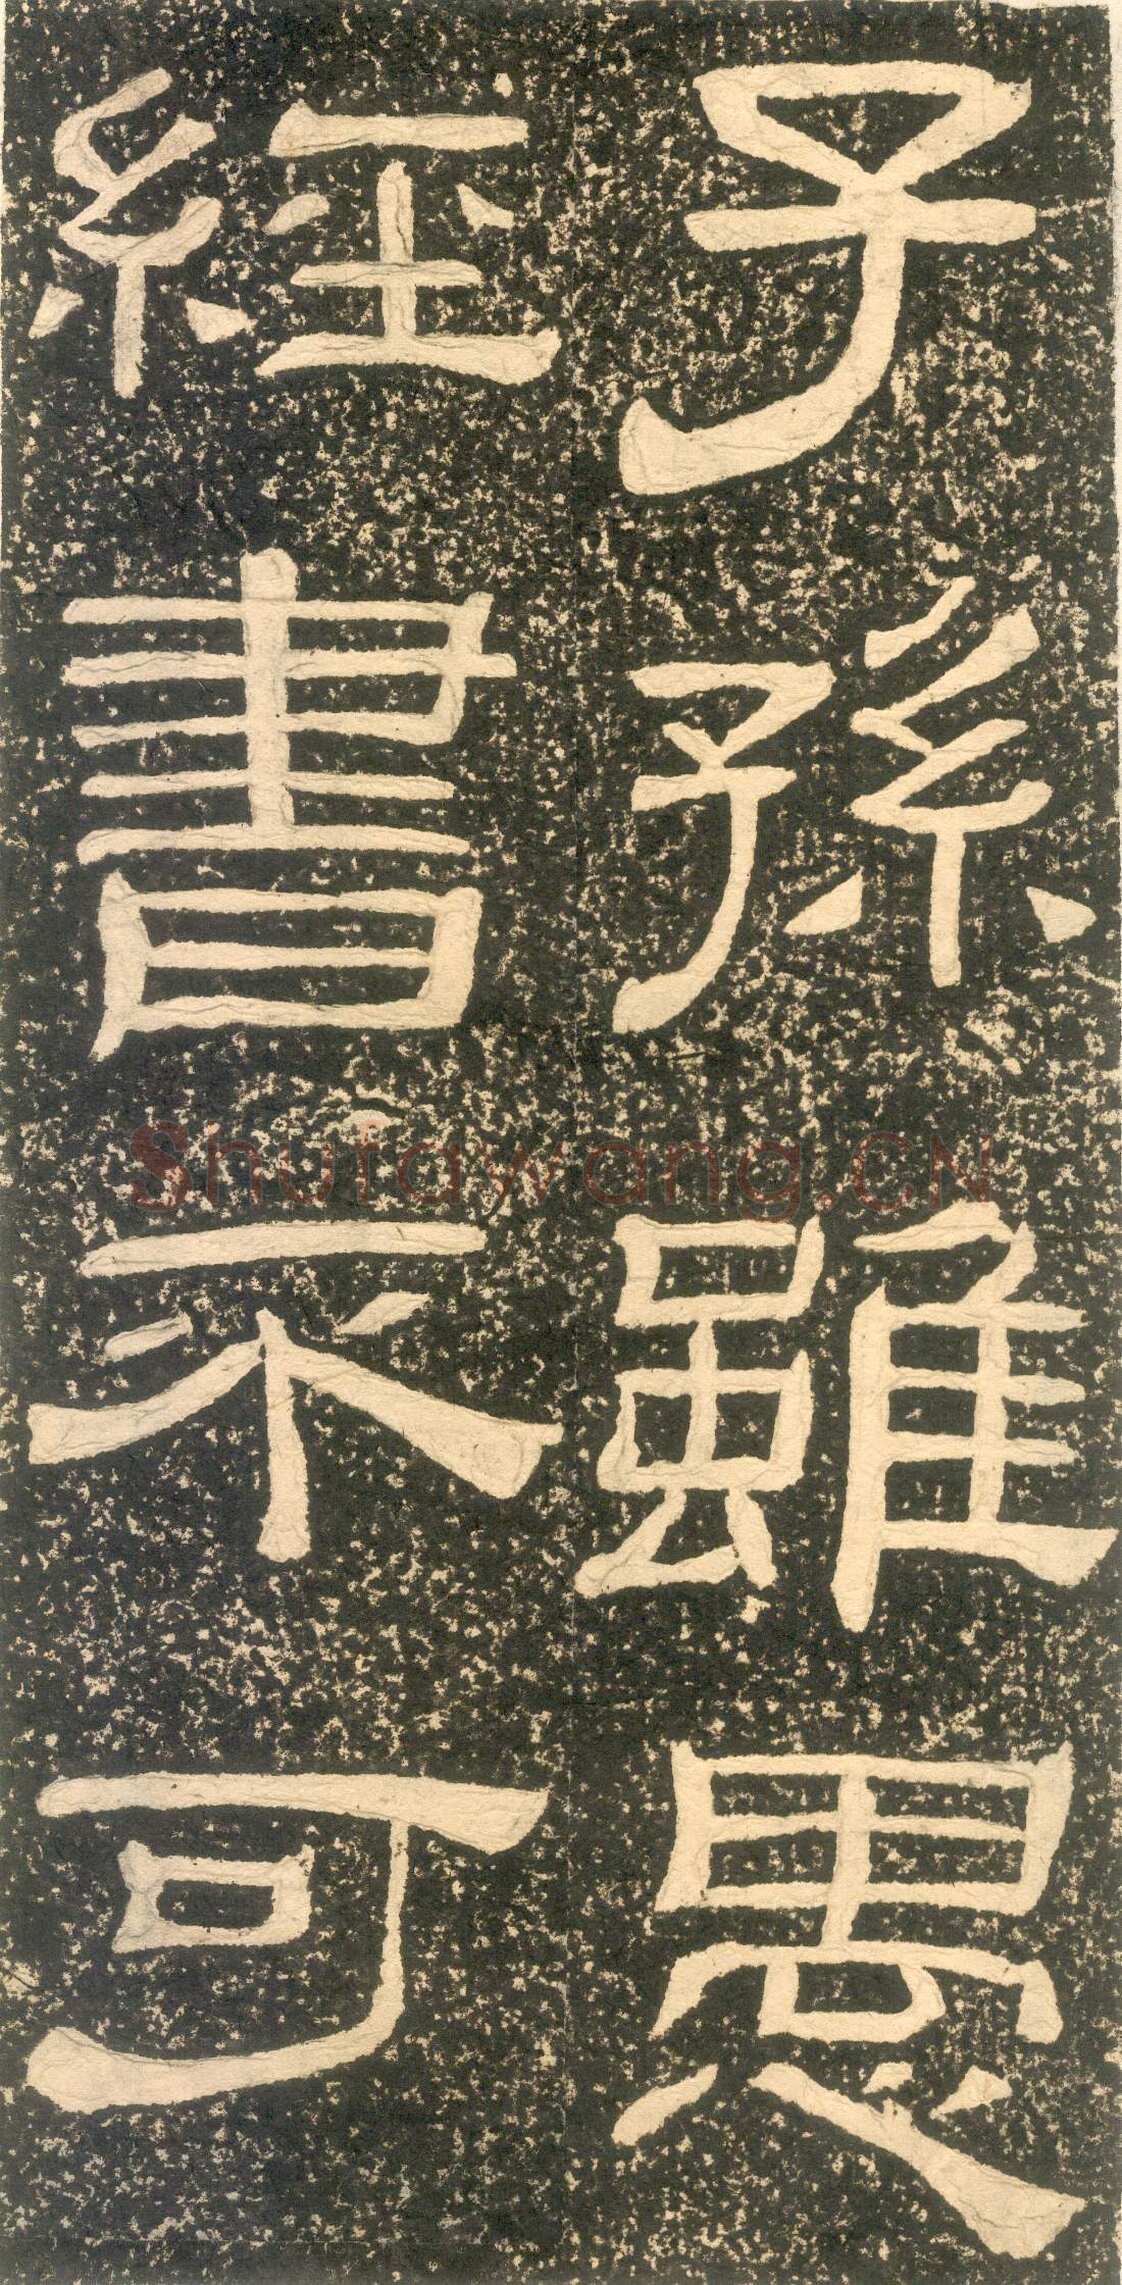 子孫雖愚
經書不可
Shufawang.CN